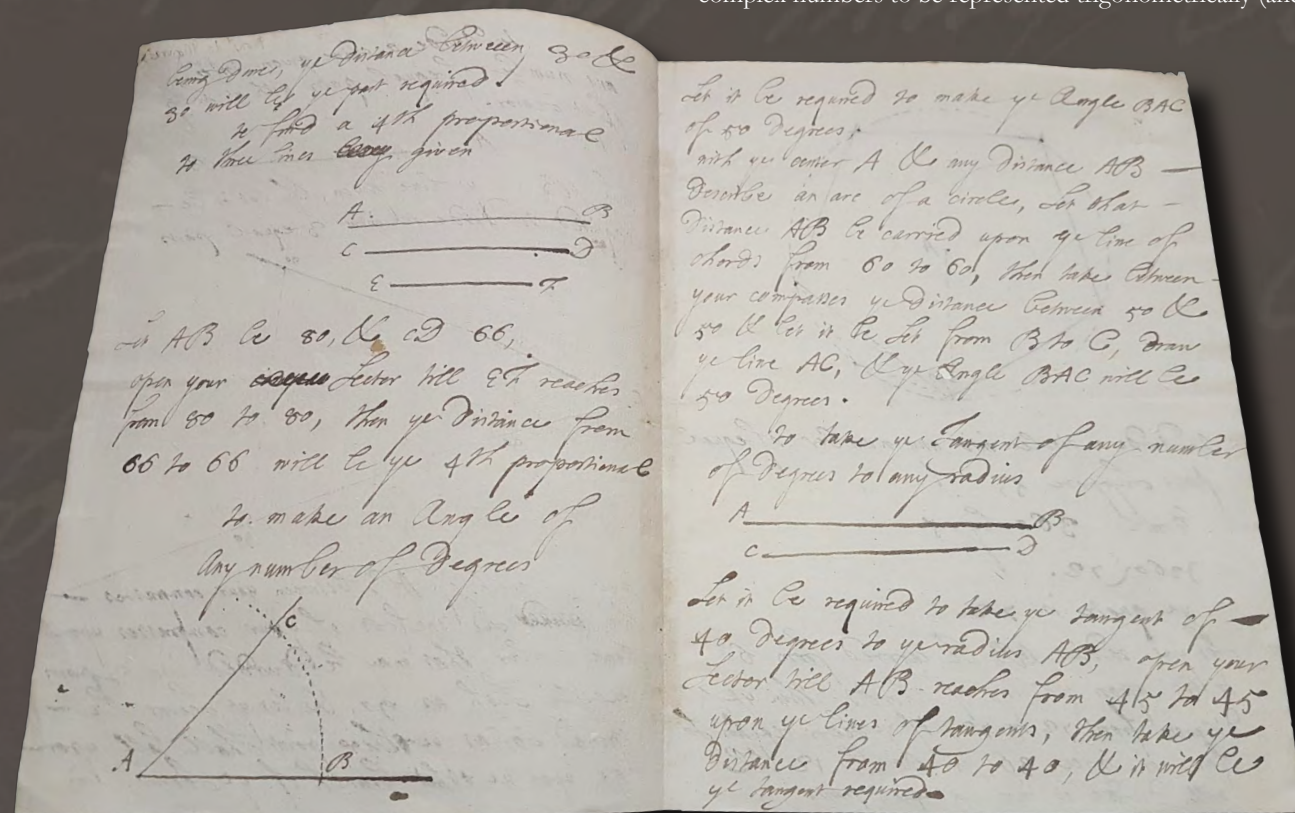 complex numbers to be represented trigonometrically (and
being Divers, ye Distance between 30 &
30 will be ye part required.
to find a 4th proportional
to three lines given
A. B
C D
E F
Let AB be 80, & CD 66,
open your Sector till EF reaches
from 80 to 80, then ye Distance from
66 to 66 will be ye 4th proportional
to make an Angle of
Any number of Degrees
C
A B
Let it be required to make ye Angle BAC
of 50 Degrees.
with ye center A & any Distance AB
Describe an arc of a circle, Let that
Distance AB be carried upon ye line of
chords from 60 to 60, then take between
your compasses ye Distance between 50 &
50 & let it be Set from B to C, Draw
ye line AC, & ye Angle BAC will be
50 Degrees.
to take ye Tangent of any number
of Degrees to any radius
A B
C D
Let it be required to take ye tangent of
40 Degrees to ye radius AB, open your
Sector till AB reaches from 45 to 45
upon ye lines of tangents, then take ye
Distance from 40 to 40, & it will be
ye tangent required